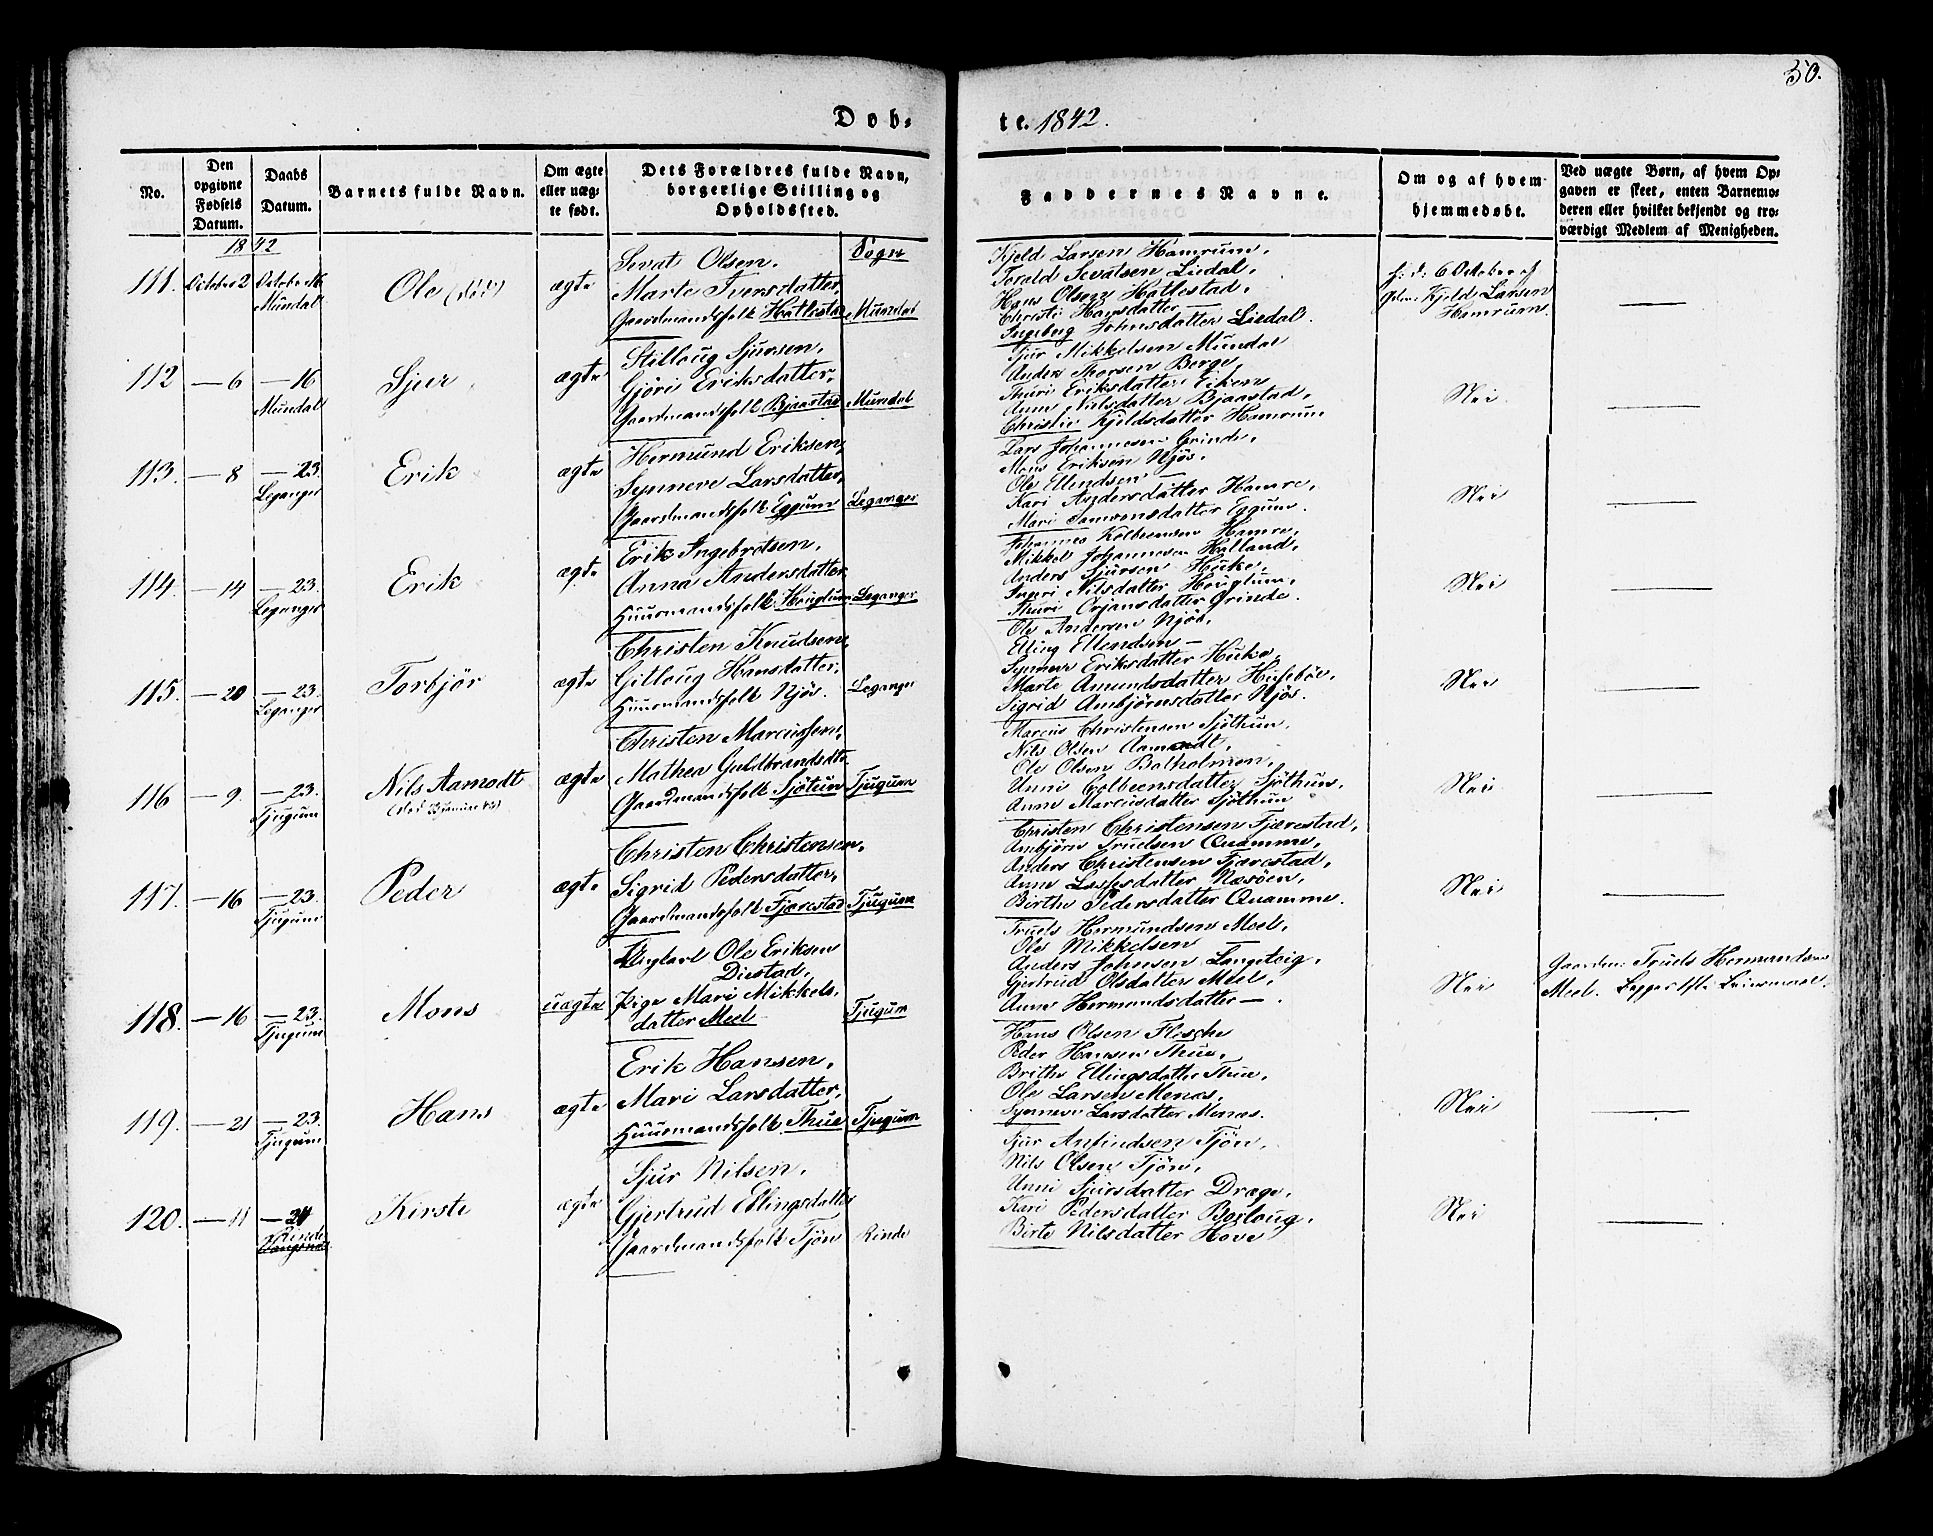 50.
Døb-
te. 1842.
No.
Den opgivne Fødsels Datum.
Daabs Datum.
Barnets fulde Navn.
Om ægte eller uægte født.
Dets Forældres fulde Navn, borgerlige Stilling og Opholdssted.
Faddernes Navne.
Om og af hvem hjemmedøbt.
Ved uægte Børn, af hvem Opgaven er skeet, enten Barnemoderen eller hvilket bekjendt og troværdigt Medlem af Menigheden.
1842
Sogn
111. October 2 October 16 Mundal
Ole (død)
ægte
Sivat Olsen,
Marte Iversdatter,
Gaardmandsfolk Hatlestad Mundal
Kjeld Larsen Hamrum,
Torald Sivatsen Liedal,
Hans Olsen Hatlestad,
Christi Hansdatter —
Ingeborg Johnsdatter Liedal.
h: d: 6 October af
Kjeld Larsen
Hamrum
112 — 6 — 16 Mundal
Sjur
ægte
Stilloug Sjursen,
Gjöri Eriksdatter,
Gaardmandsfolk Bjaastad Mundal
Sjur Mikkelsen Mundal
Anders Thorsen Berge,
Thuri Eriksdatter Eiken
Anna Nielsdatter Bjaastad,
Christie Kjeldsdatter Hamrum
Nei
113. — 8 — 23. Leganger
Erik
ægte
Hermund Eriksen,
Synneve Larsdatter,
Gaardmandsfolk Eggum Leganger
Lars Johannesen Grinde,
Mons Eriksen Njös,
Ole Ellendsen —
Kari Andersdatter Hamre,
Mari Samsonsdatter Eggum.
Nei
114. — 14 — 23. Leganger
Erik
ægte
Erik Ingebretsen,
Anna Andersdatter,
Huusmandsfolk Houglum Leganger
Johannes Kolbeensen Hamre,
Mikkel Johannesen Halland,
Anders Sjursen Huke,
Ingeri Nilsdatter Houglum,
Thuri Orjansdatter Grinde.
Nei
115. — 20 — 23. Leganger
Torbjör
ægte
Christen Knudsen,
Gitloug Hansdatter,
Huusmandsfolk Njös. Leganger
Ole Andersen Njös,
Elling Ellendsen —
Synneve Eriksdatter Huke,
Marte Amundsdatter Husebøe,
Sigrid Ambjörnsdatter Njös.
Nei
116 — 9. — 23. Tjugum
Nils Aamodt
ægte
Christen Marcussen,
Mathea Guldbrandsdtr
Gaardmandsfolk Sjötun Tjugum
Marcus Christensen Sjöthun,
Nils Olsen Aamodt,
Ole Olsen Balholmen,
Unni Colbeensdatter Sjöthun,
Anna Marcusdatter Sjöthun
Nei
117. — 16 — 23. Tjugum
Peder
ægte
Christen Christensen,
Sigrid Pedersdatter,
Gaardmandsfolk Fjærestad Tjugum
Christen Christensen Fjærestad,
Ambjörn Truelsen Quamme,
Anders Christensen Fjærestad,
Anna Lassesdatter Næsöen,
Birthe Pedersdatter Quamme.
Nei
118. — 16 — 23. Tjugum
Mons
uægte
Ungkarl Ole Eriksen
Diestad,
Pige Mari Mikkels-
datter Meel Tjugum
Truels Hermundsen Meel,
Ole Mikkelsen
Anders Johnsen Langeteig,
Gjertrud Olsdatter Meel,
Anna Hermundsdatter — .
Nei
Gaardm: Truels Hermundsen
Meel. Begges 1ste Leiermaal.
119. — 21 — 23. Tjugum
Hans
ægte
Erik Hansen,
Mari Larsdatter,
Huusmandsfolk Thue Tjugum
Hans Olsen Flesche
Peder Hansen Thue,
Brithe Ellingsdatter Thue,
Ole Larsen Menæs,
Synneve Larsdatter Menæs.
Nei
120. — 11 — 24 Rinde
Kirste
ægte
Sjur Nilsen,
Gjertrud Ellingsdatter
Gaardmandsfolk Tjön Rinde
Sjur Anfindsen Tjön,
Nils Olsen Tjön,
Unni Sjursdatter Dræge,
Kari Pedersdatter Borloug,
Birte Nilsdatter Hove
Nei